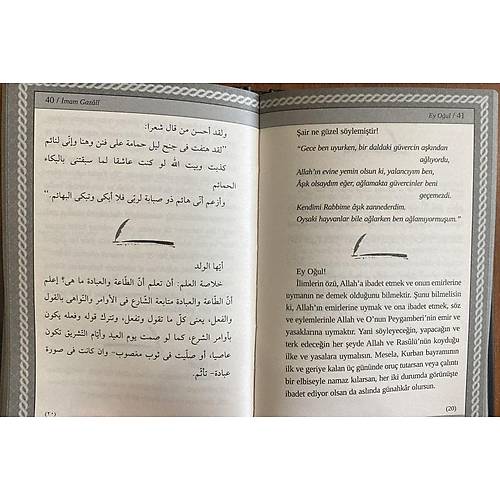 40 / İmam Gazâlî
ولقد أحسن من قال شعرا:
"لقد هتفت في جنح ليل حمامة على فنن وهنا وإنّي لنائم
كذبت وبيت الله لو كنت عاشقا لما سبقتني بالبكاء
الحمائم
وأزعم أنّى هائم ذو صبابة لربّى فلا أبكي وتبكى البهائم."
أيّها الولد
خلاصة العلم: أن تعلم أنّ الطّاعة والعبادة ما هى؟ إعلم
أنّ الطّاعة والعبادة متابعة الشّارع فى الأوامر والنّواهى بالقول
والفعل، يعنى كلّ ما تقول وتفعل، وتترك قوله وفعله يكون
بأوامر الشرع، كما لو صمت يوم العيد وأيّام التّشريق تكون
عاصيا، أو صلّيت فى ثوب مغصوب- وان كانت فى صورة
عبادة- تأثم.
(٢٠)
Ey Oğul / 41
Şair ne güzel söylemiştir!
“Gece ben uyurken, bir daldaki güvercin aşkından
ağlıyordu,
Allah'ın evine yemin olsun ki, yalancıyım ben,
Âşık olsaydım eğer, ağlamakta güvercinler beni
geçemezdi.
Kendimi Rabbime âşık zannederdim.
Oysaki hayvanlar bile ağlarken ben ağlamıyormuşum.”
Ey Oğul!
İlimlerin özü, Allah'a ibadet etmek ve onun emirlerine
uymanın ne demek olduğunu bilmektir. Şunu bilmelisin
ki, Allah'ın emirlerine uymak ve ona ibadet etmek, söz
ve eylemlerinle Allah ve O'nun Peygamberi'nin emir ve
yasaklarına uymaktır. Yani söyleyeceğin, yapacağın ve
terk edeceğin her şeyde Allah ve Rasûlü'nün koyduğu
ilke ve yasalara uymalısın. Mesela, Kurban bayramının
ilk ve geriye kalan üç gününde oruç tutarsan veya çalıntı
bir elbiseyle namaz kılarsan, her iki durumda görünüşte
ibadet ediyor olsan da aslında günahkâr olursun.
(20)